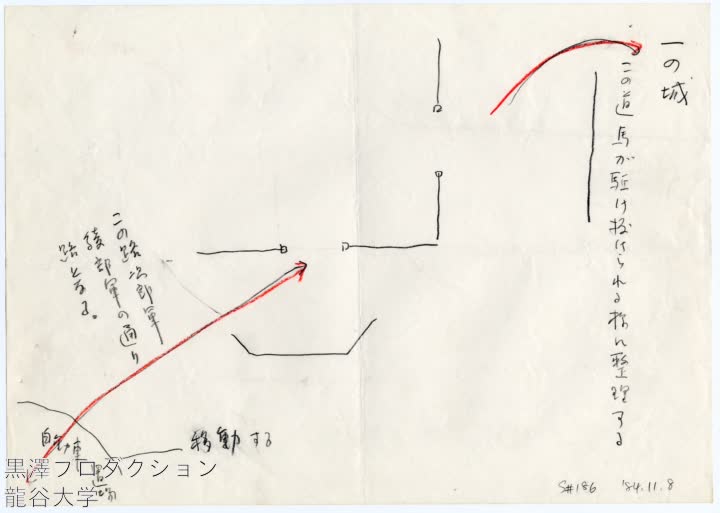 一の城
この道馬が駈け抜けられる様に整理する
この路次郎軍
綾部軍の通り
路となる。
自動車
道路
移動する
S#186 '84.11.8
黒澤プロダクション
龍谷大学